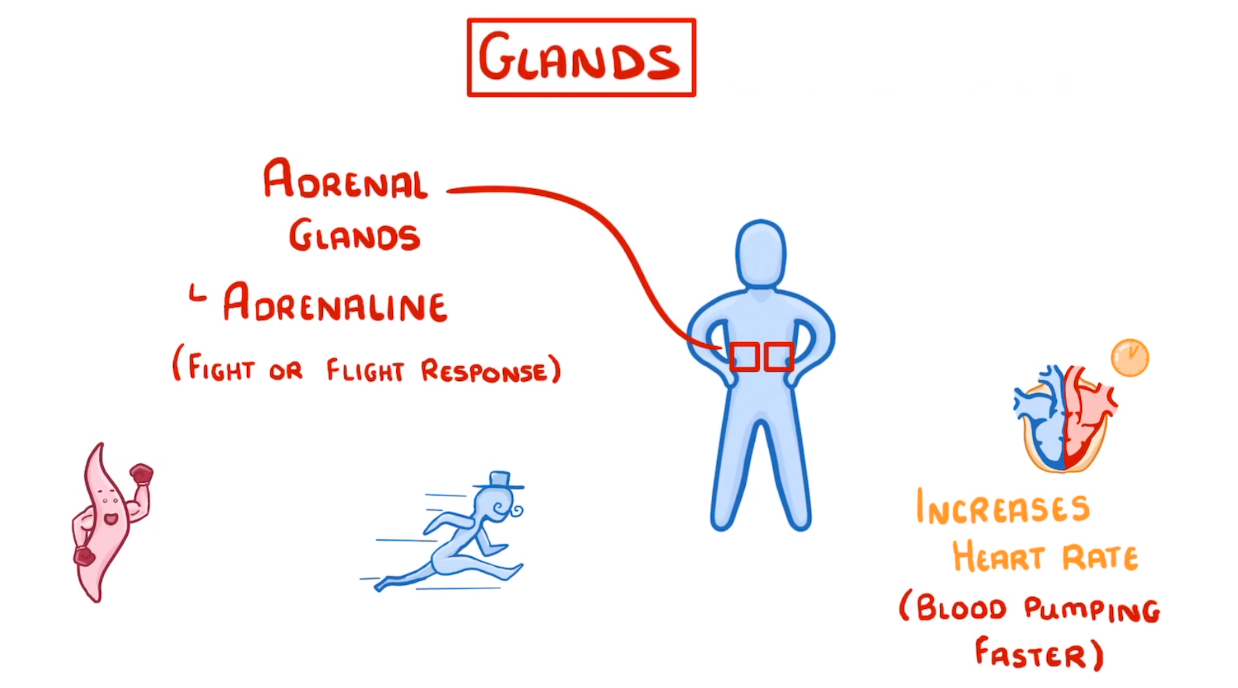 GLANDS
ADRENAL
GLANDS
ADRENALINE
(FIGHT OR FLIGHT RESPONSE)
INCREASES
HEART RATE
(BLOOD PUMPING
FASTER)